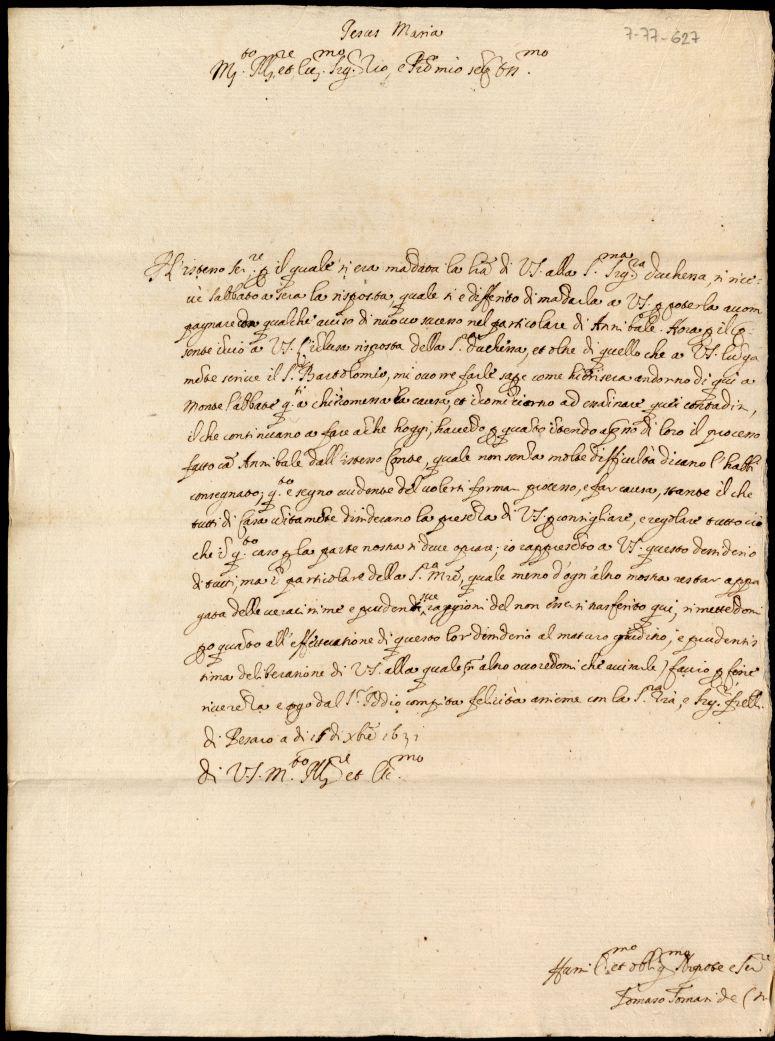 Jesus Maria
7-77-627
M.to Ill.re et Ecc.mo Sig.r Zio, e Pron mio sempre oss.mo
L'istesso Ser.re p il quale si era madata la lra di VS. alla S.ma Sig.ra duchessa, si rice-
vè sabbato a sera la risposta, quale si e differito di madarla a VS. p poterla accom
pagnare con qualche aviso di nuovo sucesso nel particolare di Annibale. Hora p il p
sente invio a VS. l'inclusa risposta della S.ra duchessa, et oltre di quello che a VS. lunga
mente scrive il S.r Bartolomio, mi occorre farle sape come hiersera andorno di qui a
Monte l'abbate q.ti a chi comessa la causa, et incominciorno ad essaminare quei contadini,
il che continuano a fare anche hoggi, havendo p quato intendo apresso di loro il processo
fatto cō Annibale dall'istesso Conte, quale non senza molte difficultà dicano l'habbi
consegnato; q.to e segno evidente del volersi formar processo, e far causa, stante il che
tutti di Casa unitamente desiderano la presenza di VS. p consigliare, e regolare tutto ciò
che in q.to caso p la parte nostra si deve oprare; io rappresento a VS. questo desiderio
di tutti, ma in particolare della S.ra Mre, quale meno d'ogn'altro mostra restar appa
gata delle veracissime e prudenti sue raggioni del non essersi trasferito qui, rimettedomi
po quato all'effettuatione di questo lor desiderio al maturo giuditio, e prudentis
sima deliberatione di VS. alla quale nō altro occorredomi che avisarle, faccio p fine
riverenza e pgo dal S.r Iddio compita felicità assieme con la S.ra Zia, e Sig.ri frelli.
di Pesaro a di 15 di Xbre 1631
di VS. M.to Ill.re et Ecc.mo
Humiliss.mo et oblig.mo Nepote e Ser.re
Tomaso Tomani de